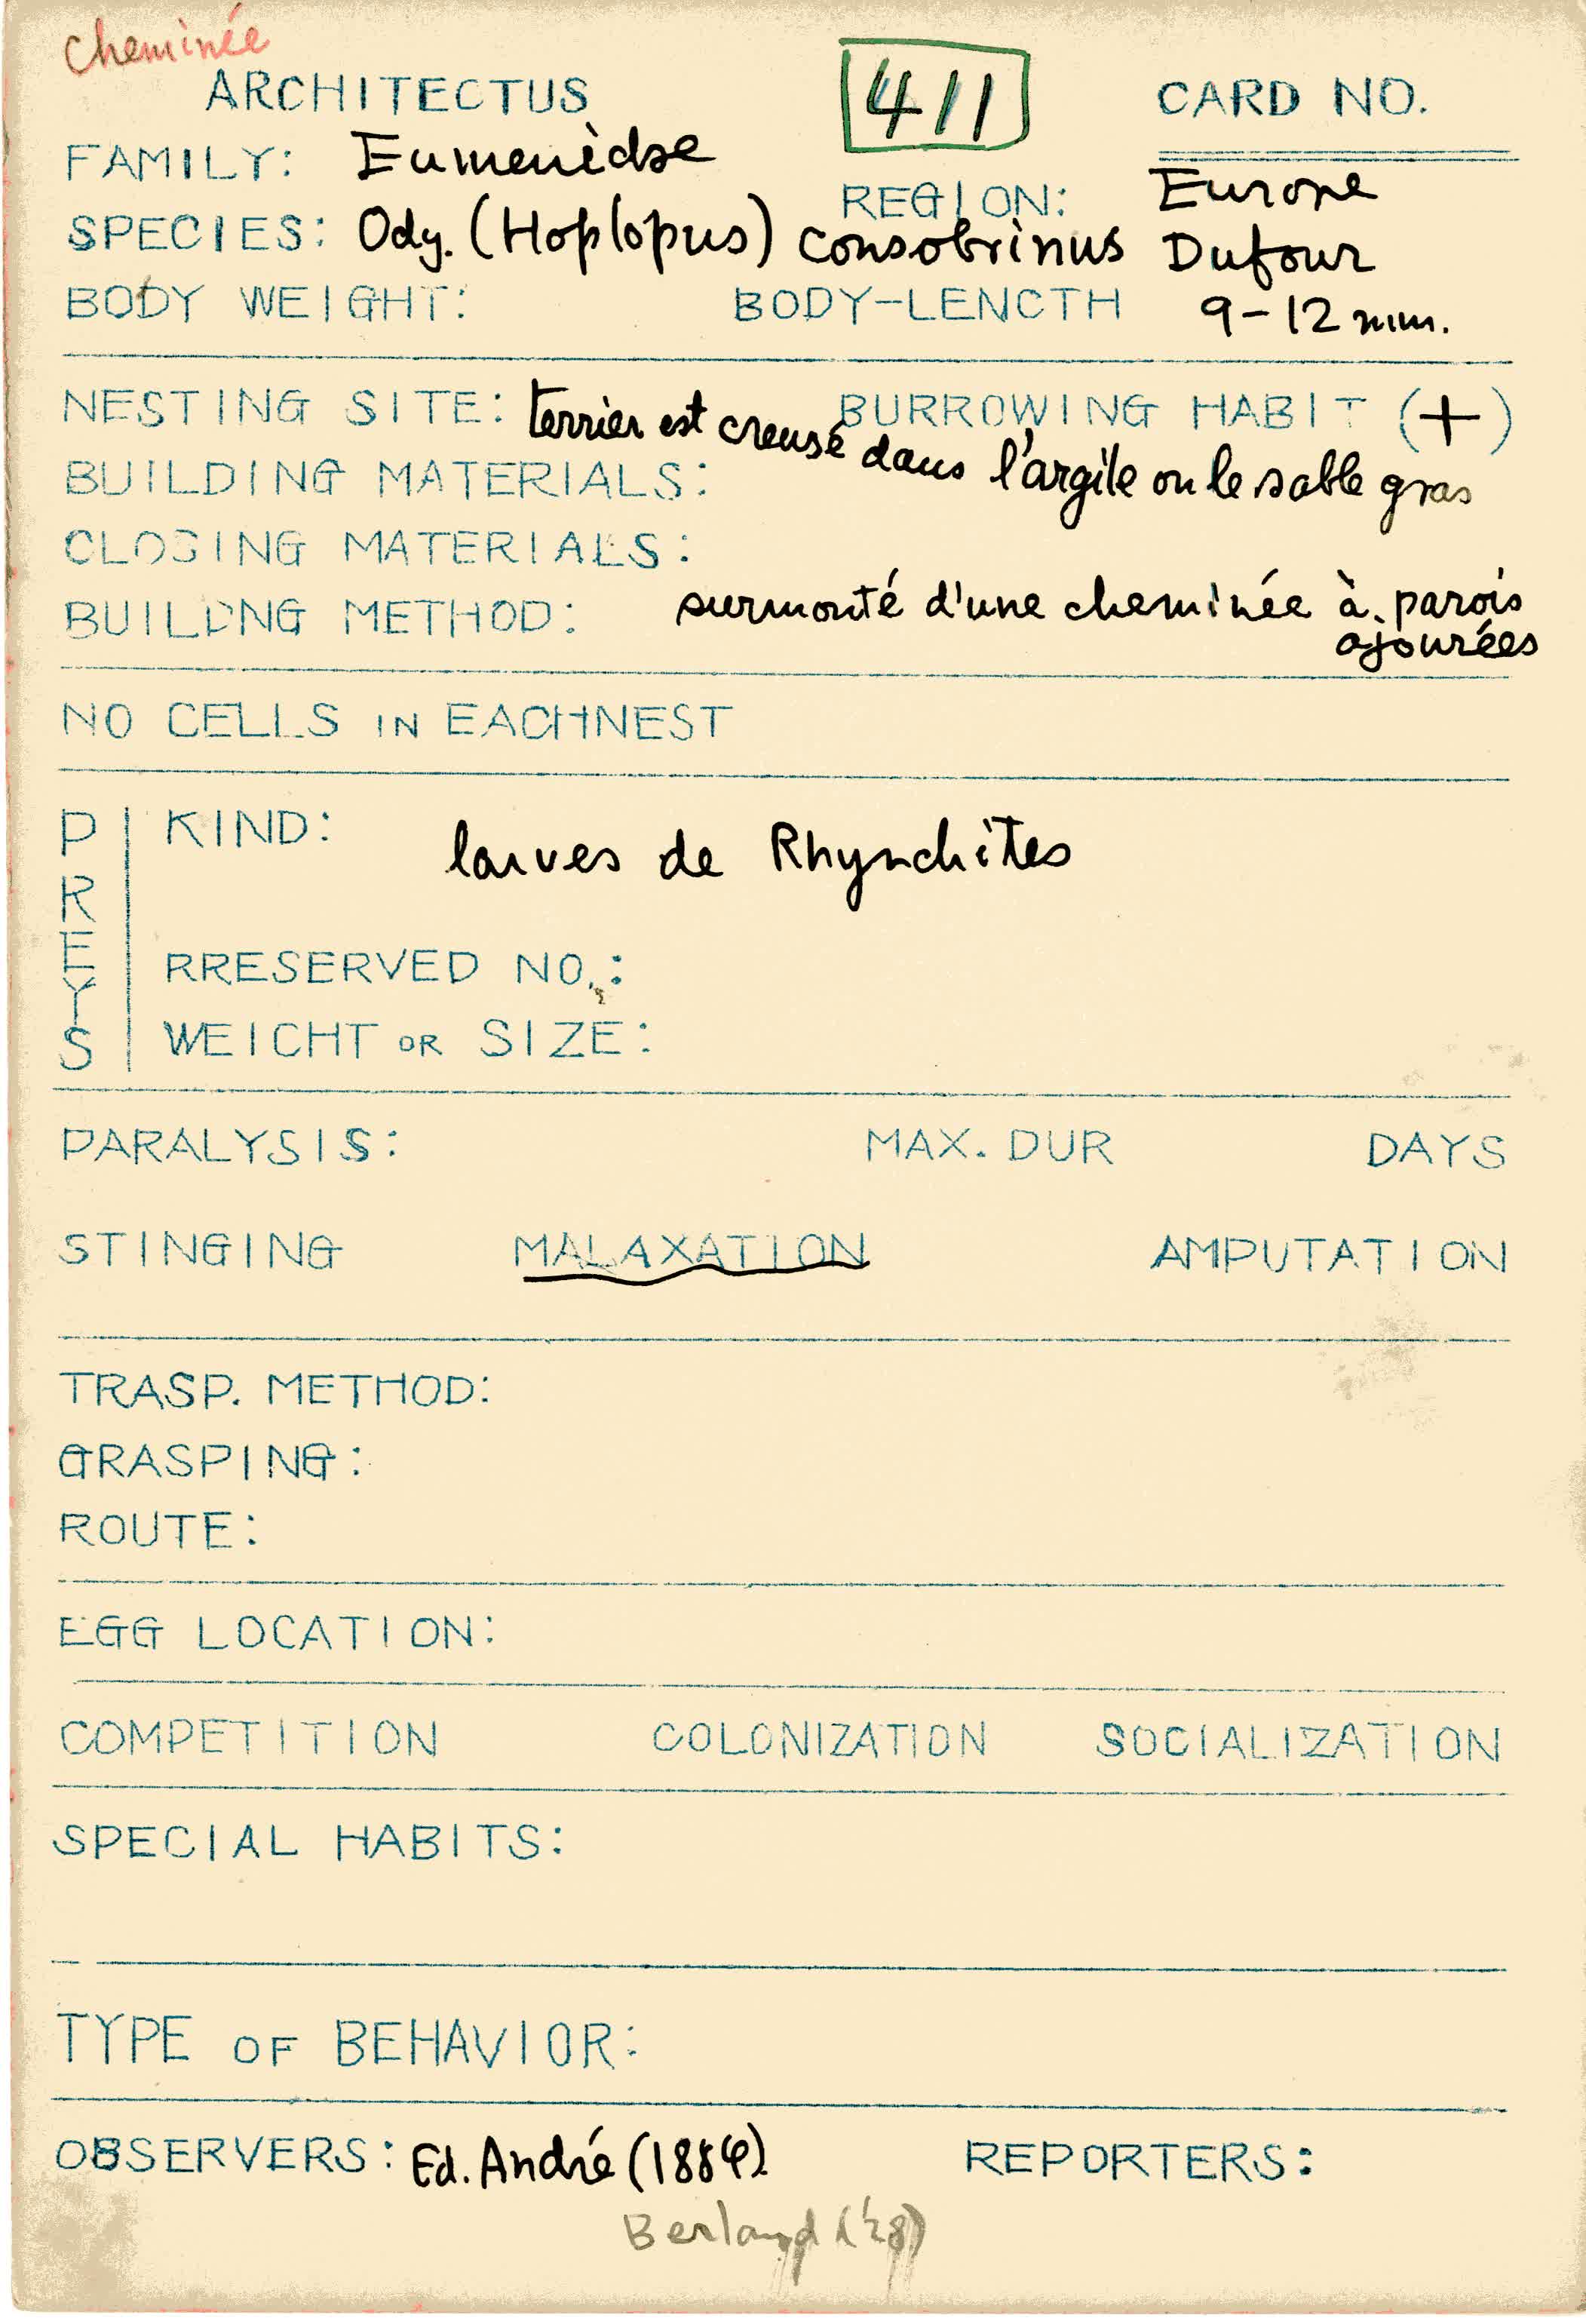 cheminée
ARCHITECTUS 411 CARD NO.
FAMILY: Eumenidae REGION: Europe
SPECIES: Ody. (Hoplopus) consobrinus Dufour
BODY WEIGHT: BODY-LENCTH 9-12 mm.
NESTING SITE: terrier est creusé dans l'argile ou le sable gras BURROWING HABIT (+)
BUILDING MATERIALS:
CLOSING MATERIALS:
BUILDNG METHOD: surmonté d'une cheminée à parois
ajourées
NO CELLS IN EACHNEST
PREYS
KIND: larves de Rhynchites
RRESERVED NO.:
WEICHT OR SIZE:
PARALYSIS: MAX. DUR DAYS
STINGING MALAXATION AMPUTATION
TRASP. METHOD:
GRASPING:
ROUTE:
EGG LOCATION:
COMPETITION COLONIZATION SOCIALIZATION
SPECIAL HABITS:
TYPE OF BEHAVIOR:
OBSERVERS: Ed. André REPORTERS:
Berland ('28)